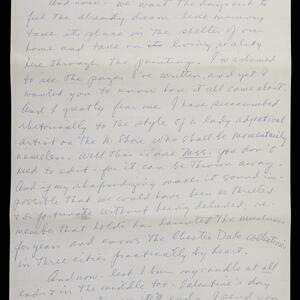 And now - we want the days out to
feel the already dream-like memory
take its place in the shelter of our
home and take on its living reality
here through the paintings. I'm ashamed
to see the pages I've written, and yet I
wanted you to know how it all came about.
And I greatly fear me I have succumbed
rhetorically to the style of a lady adjectival
artist on the N. Shore who shall be momentarily
nameless. Well this is one Mss. you don't
need to edit - for it can be thrown away.
And if my rhapsodizing make it sound im-
possible that we could have been so thrilled
& so fortunate without being deluded, re-
member that has haunted the museums
for years and knows the Chester Dale collections
in three cities practically by heart.
And now lest I burn my candle at all
ends & in the middle too - Valentine's day